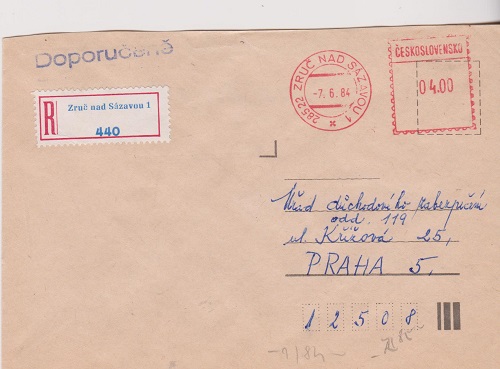 Doporučeně
R Zruč nad Sázavou 1
440
28522 ZRUČ NAD SÁZAVOU 1
-7. 6. 84
ČESKOSLOVENSKO
04.00
Úřad důchodového zabezpečení
odd. 119
ul. Křížová 25,
PRAHA 5,
12508